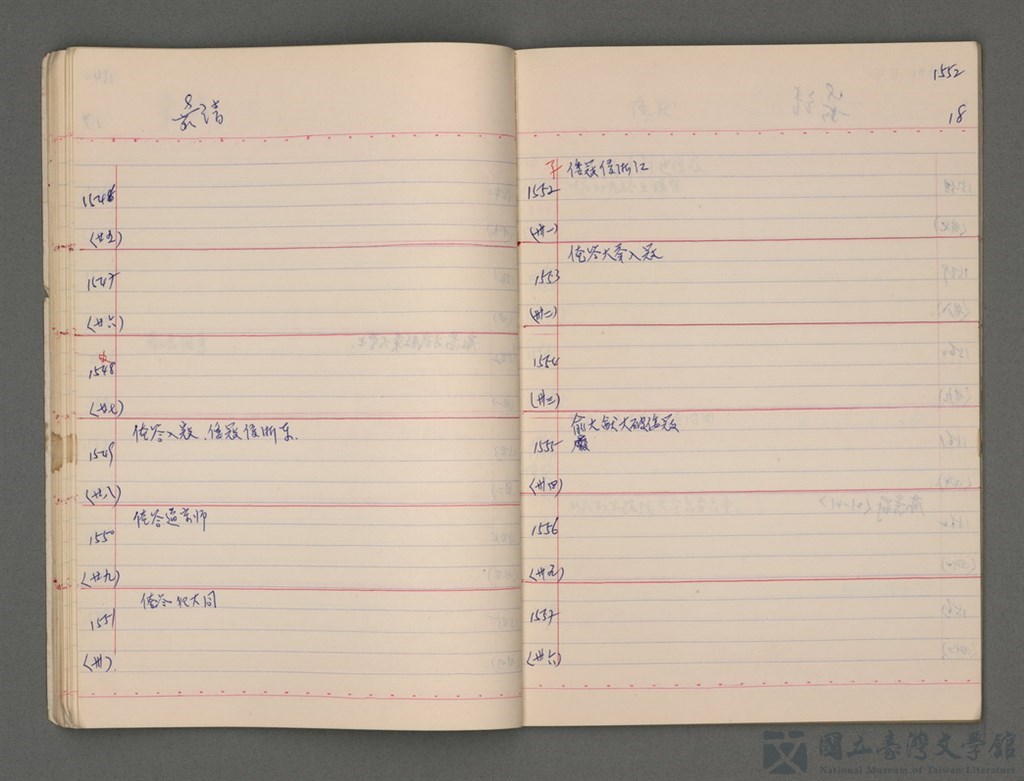 1546
(廿五)
1547
(廿六)
1548
(廿七)
俺答入寇.倭寇侵浙东.
1549
(廿八)
俺答逼京师
1550
(廿九)
俺答犯大同
1551
(卅)
1552
18
倭寇侵浙江
1552
(卅一)
俺答大举入寇
1553
(卅二)
1554
(卅三)
俞大猷大破倭寇
1555
(卅四)
1556
(卅五)
1557
(卅六)
國立臺灣文學館
National Museum of Taiwan Literature